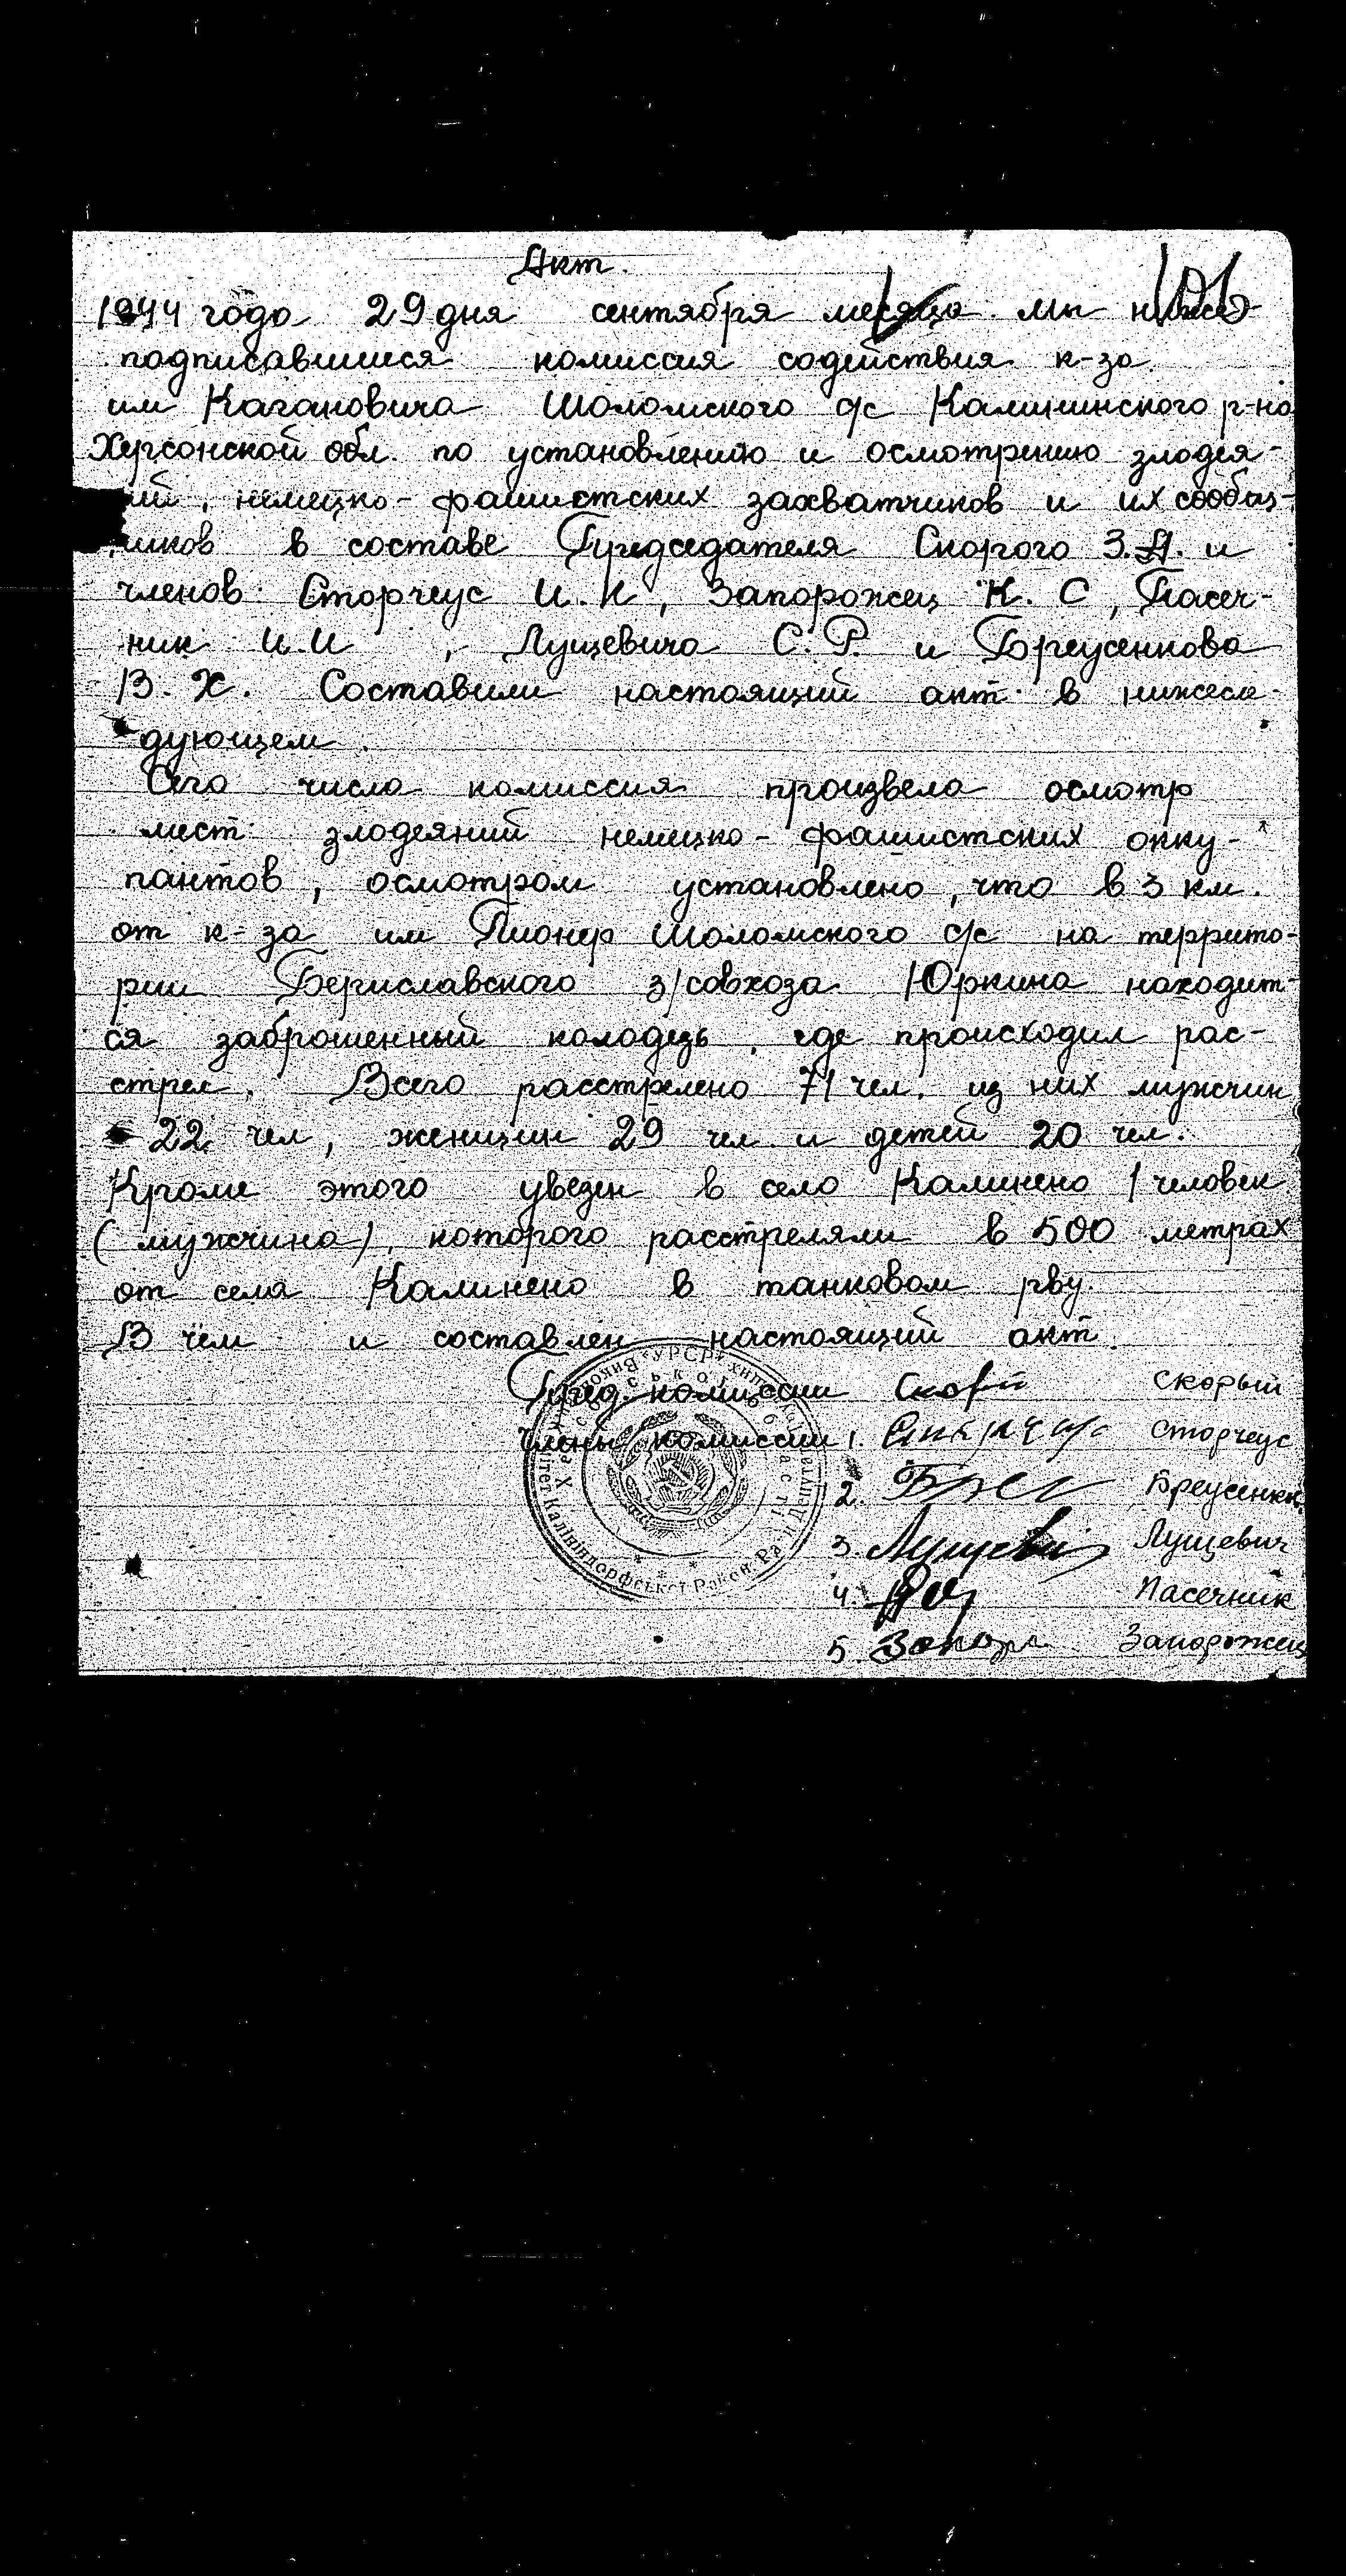 Акт.
101
1944 года 29 дня сентября месяца мы ниже
подписавшиеся комиссия содействия к-за
им Кагановича Шоломского с/с Калининского р-на
Херсонской обл. по установлению и осмотрению злодея-
ий, немецко-фашистских захватчиков и их сообщ-
ников в составе Председателя Скорого З.Д. и
членов Сторчеус И.К, Запорожец К.С, Пасеч-
ник И.И, Лущевича С.Р. и Бреусенкова
В.Х. Составили настоящий акт в нижесле-
дующем.
Сего числа комиссия произвела осмотр
мест злодеяний немецко-фашистских окку-
пантов, осмотром установлено, что в 3 км.
от к-за им Пионер Шоломского с/с на террито-
рии Бериславского з/совхоза Юркина находит-
ся заброшенный колодезь, где происходил рас-
стрел. Всего расстрелено 71 чел. из них мужчин
22 чел, женщин 29 чел и детей 20 чел.
Кроме этого увезен в село Калинено 1 человек
(мужчина), которого расстреляли в 500 метрах
от села Калинено в танковом рву.
В чем и составлен настоящий акт.
Пред. комиссии Скорый Скорый
Члены комиссии 1. Сторчеус
2. Бреусенков
3. Лущевич Лущевич
4. Пасечник
5. Запор Запорожец
УРСР Херсонської області Калініндорфської Район. Ради Депутатів